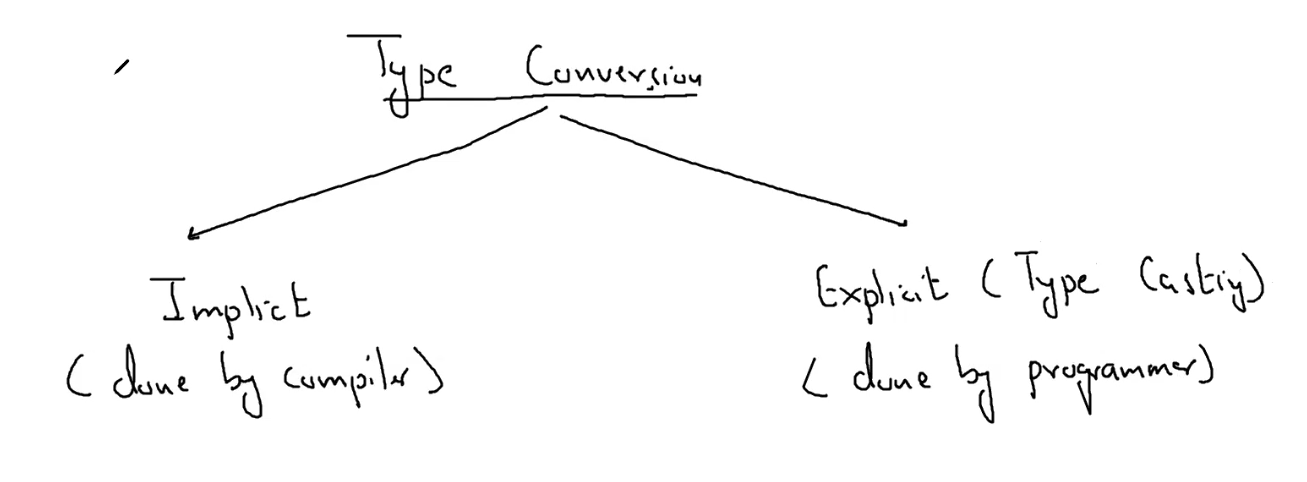 Type Conversion
Implict
(done by compiler)
Explicit (Type Casting)
(done by programmer)